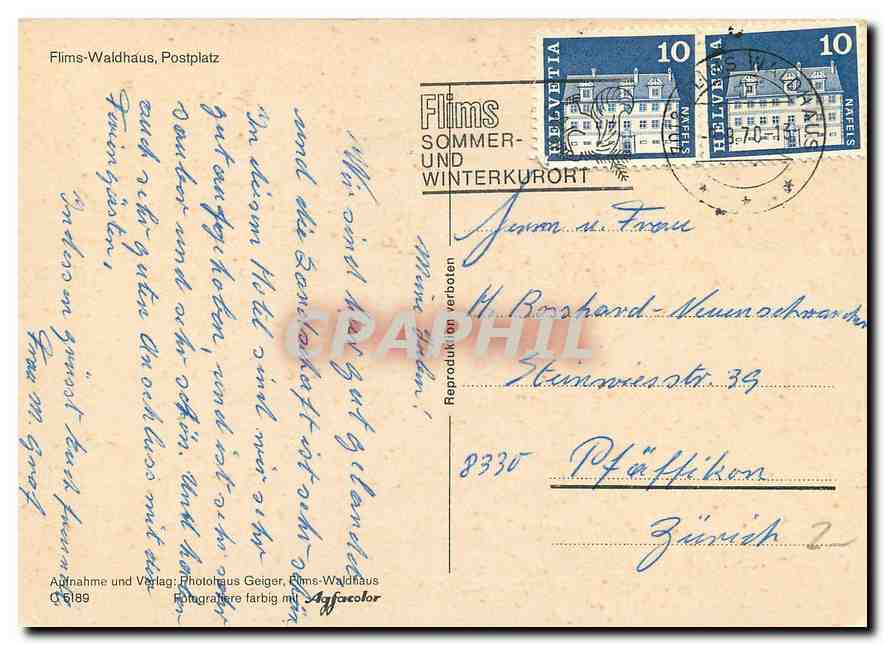 Flims-Waldhaus, Postplatz
HELVETIA 10 NÄFELS
HELVETIA 10 NÄFELS
Flims
SOMMER-
UND
WINTERKURORT
Meine Lieben!
Wir sind hier gut gelandet
und die Landschaft ist sehr schön
In diesem Hotel sind wir sehr
gut aufgehoben, und ist sehr sehr
sauber und sehr schön. Und haben
auch sehr guten Anschluss mit den
Feriengästen,
Indessen grüsst Euch freundl.
Frau M Graf
Reproduktion verboten
Herrn u. Frau
H. Bosshard-Neuenschwander
Steinwiesstr. 39
8330 Pfäffikon
Zürich
2
CPAPHIL
Aufnahme und Verlag: Photohaus Geiger, Flims-Waldhaus
C 5189 Fotografiere farbig mit Agfacolor